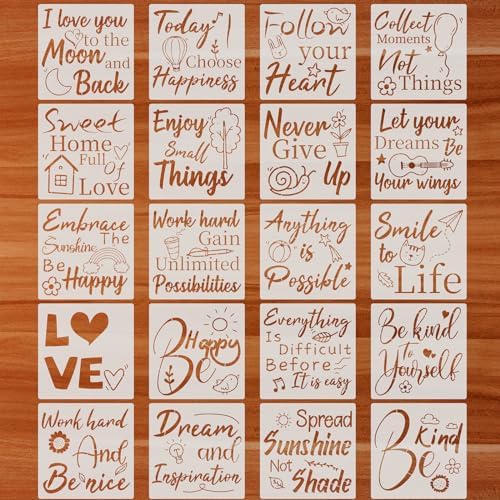 I love you
to the
Moon and
Back
Today I
Choose
Happiness
Follow
your
Heart
Collect
Moments
Not
Things
Sweet
Home
Full
Of
Love
Enjoy
Small
Things
Never
Give
Up
Let your
Dreams Be
Your wings
Embrace
The
Sunshine
Be
Happy
Work hard
Gain
Unlimited
Possibilities
Anything
is
Possible
Smile
to
Life
LOVE
Be Happy
Everything
Is
Difficult
Before
It is easy
Be kind
To
Yourself
Work hard
And
Be nice
Dream
and
Inspiration
Spread
Sunshine
Not
Shade
Be Kind